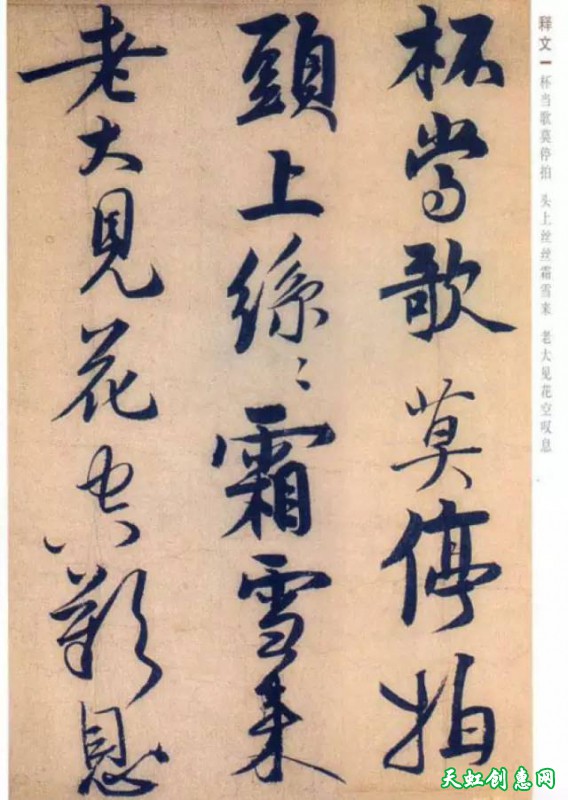 杯當歌莫停拍
頭上絲〻霜雪来
老大見花空歎息
释文一 杯当歌莫停拍 头上丝丝霜雪来 老大见花空叹息
天虹创惠网